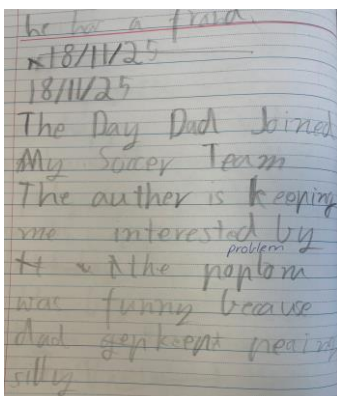 he has a
18/11/25
18/11/25
The Day Dad Joined
My Soccer Team
The auther is keeping
me interested by
problem
the poplom
was funny because
dad kept
silly